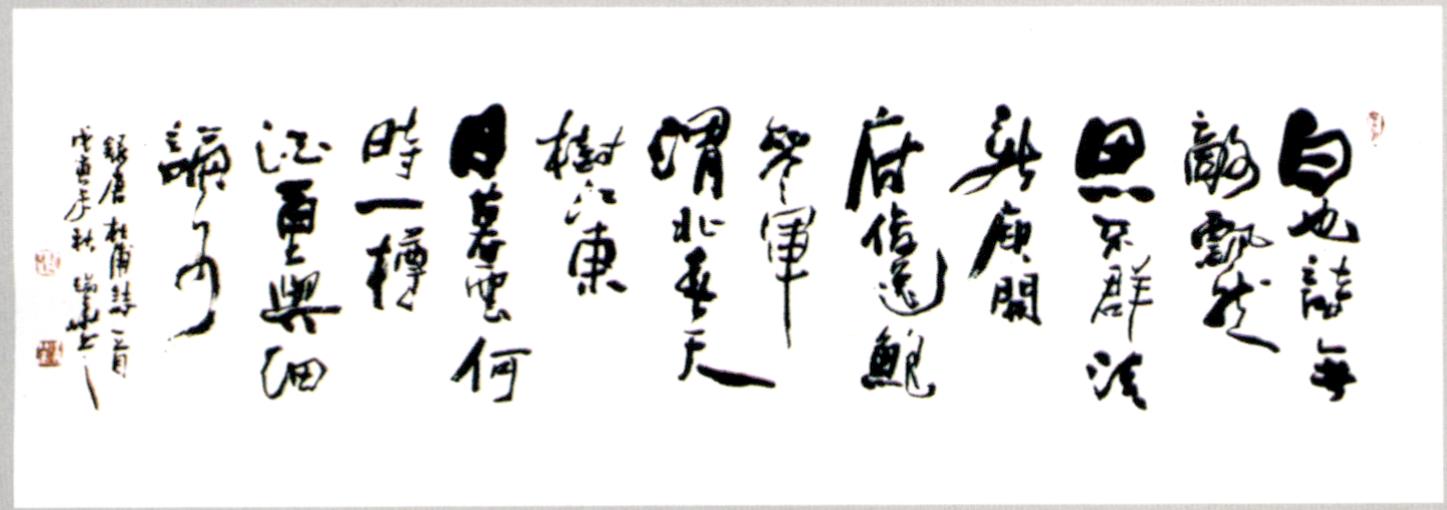 白也詩無
敵飄然
思不群清
新庾開
府俊逸鮑
參軍
渭北春天
樹江東
日暮雲何
時一樽
酒重與細
論文
錄唐杜甫詩一首
戊寅年秋